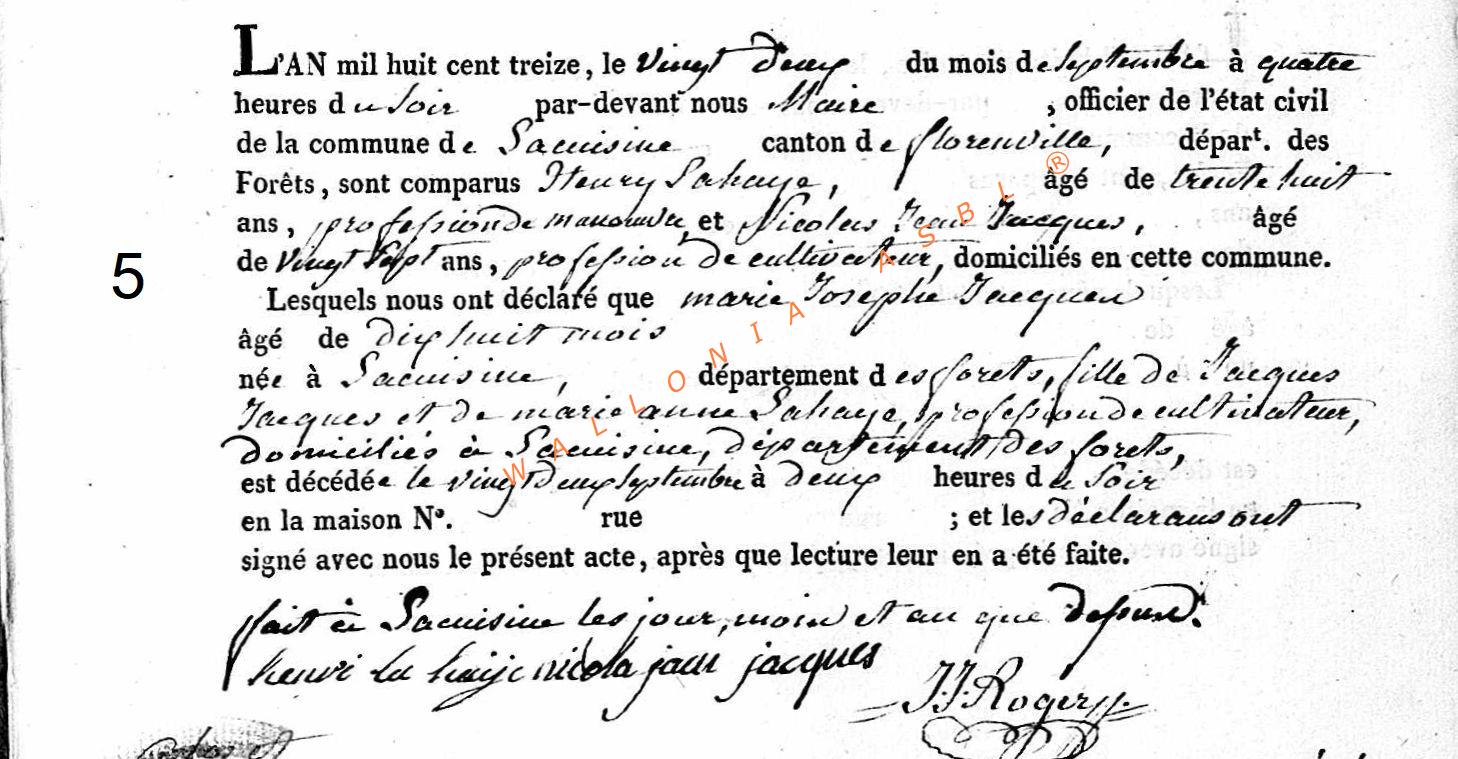 L'AN mil huit cent treize, le vingt deux du mois de septembre à quatre
heures du soir par-devant nous Maire ; officier de l'état civil
de la commune de Lacuisine canton de florenville, départ. des
Forêts, sont comparus Henry Lahaye, âgé de trente huit
ans, profession de manouvrier et Nicolas Jean Jacques, âgé
5
de vingt sept ans, profession de cultivateur, domiciliés en cette commune.
Lesquels nous ont déclaré que marie Josephe Jacques
âgé de dix huit mois
née à Lacuisine, département des forets, fille de Jacques
Jacques et de marie anne Lahaye, profession de cultivateur,
domiciliés à Lacuisine, département des forets,
est décédée le vingt deux septembre à deux heures du soir
en la maison N°. rue ; et les déclarans ont
signé avec nous le présent acte, après que lecture leur en a été faite.
fait à Lacuisine les jour, mois et an que dessus.
henri la haije nicola jean jacques
J.J. Rogery
WALLONIA ASBL ®